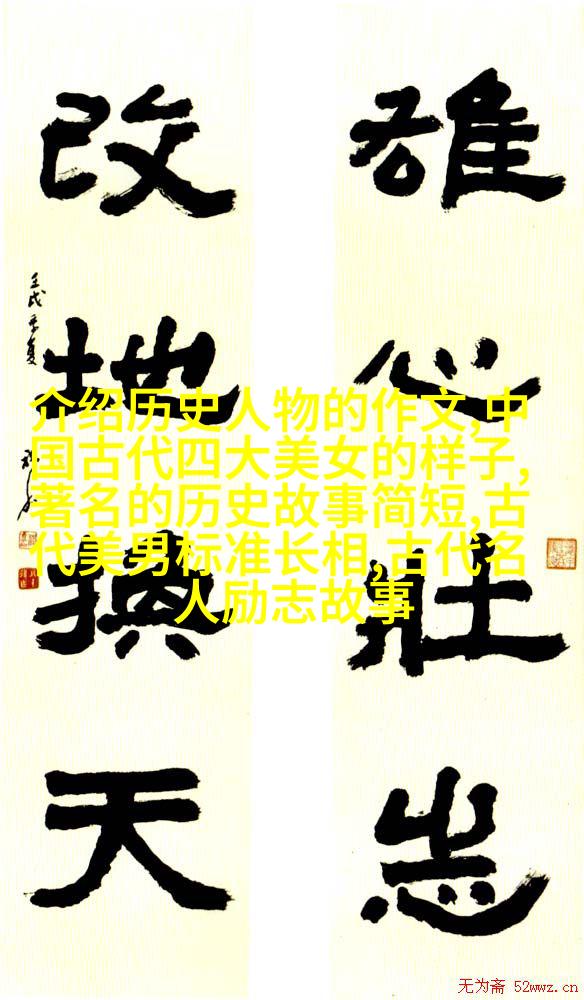 雄心壮志
改地换天
壬戌孟夏
介绍历史人物的作文,中
国古代四大美女的样子,
著名的历史故事简短,古
代美男标准长相,古代名
人励志故事
无为斋 52wwz.cn